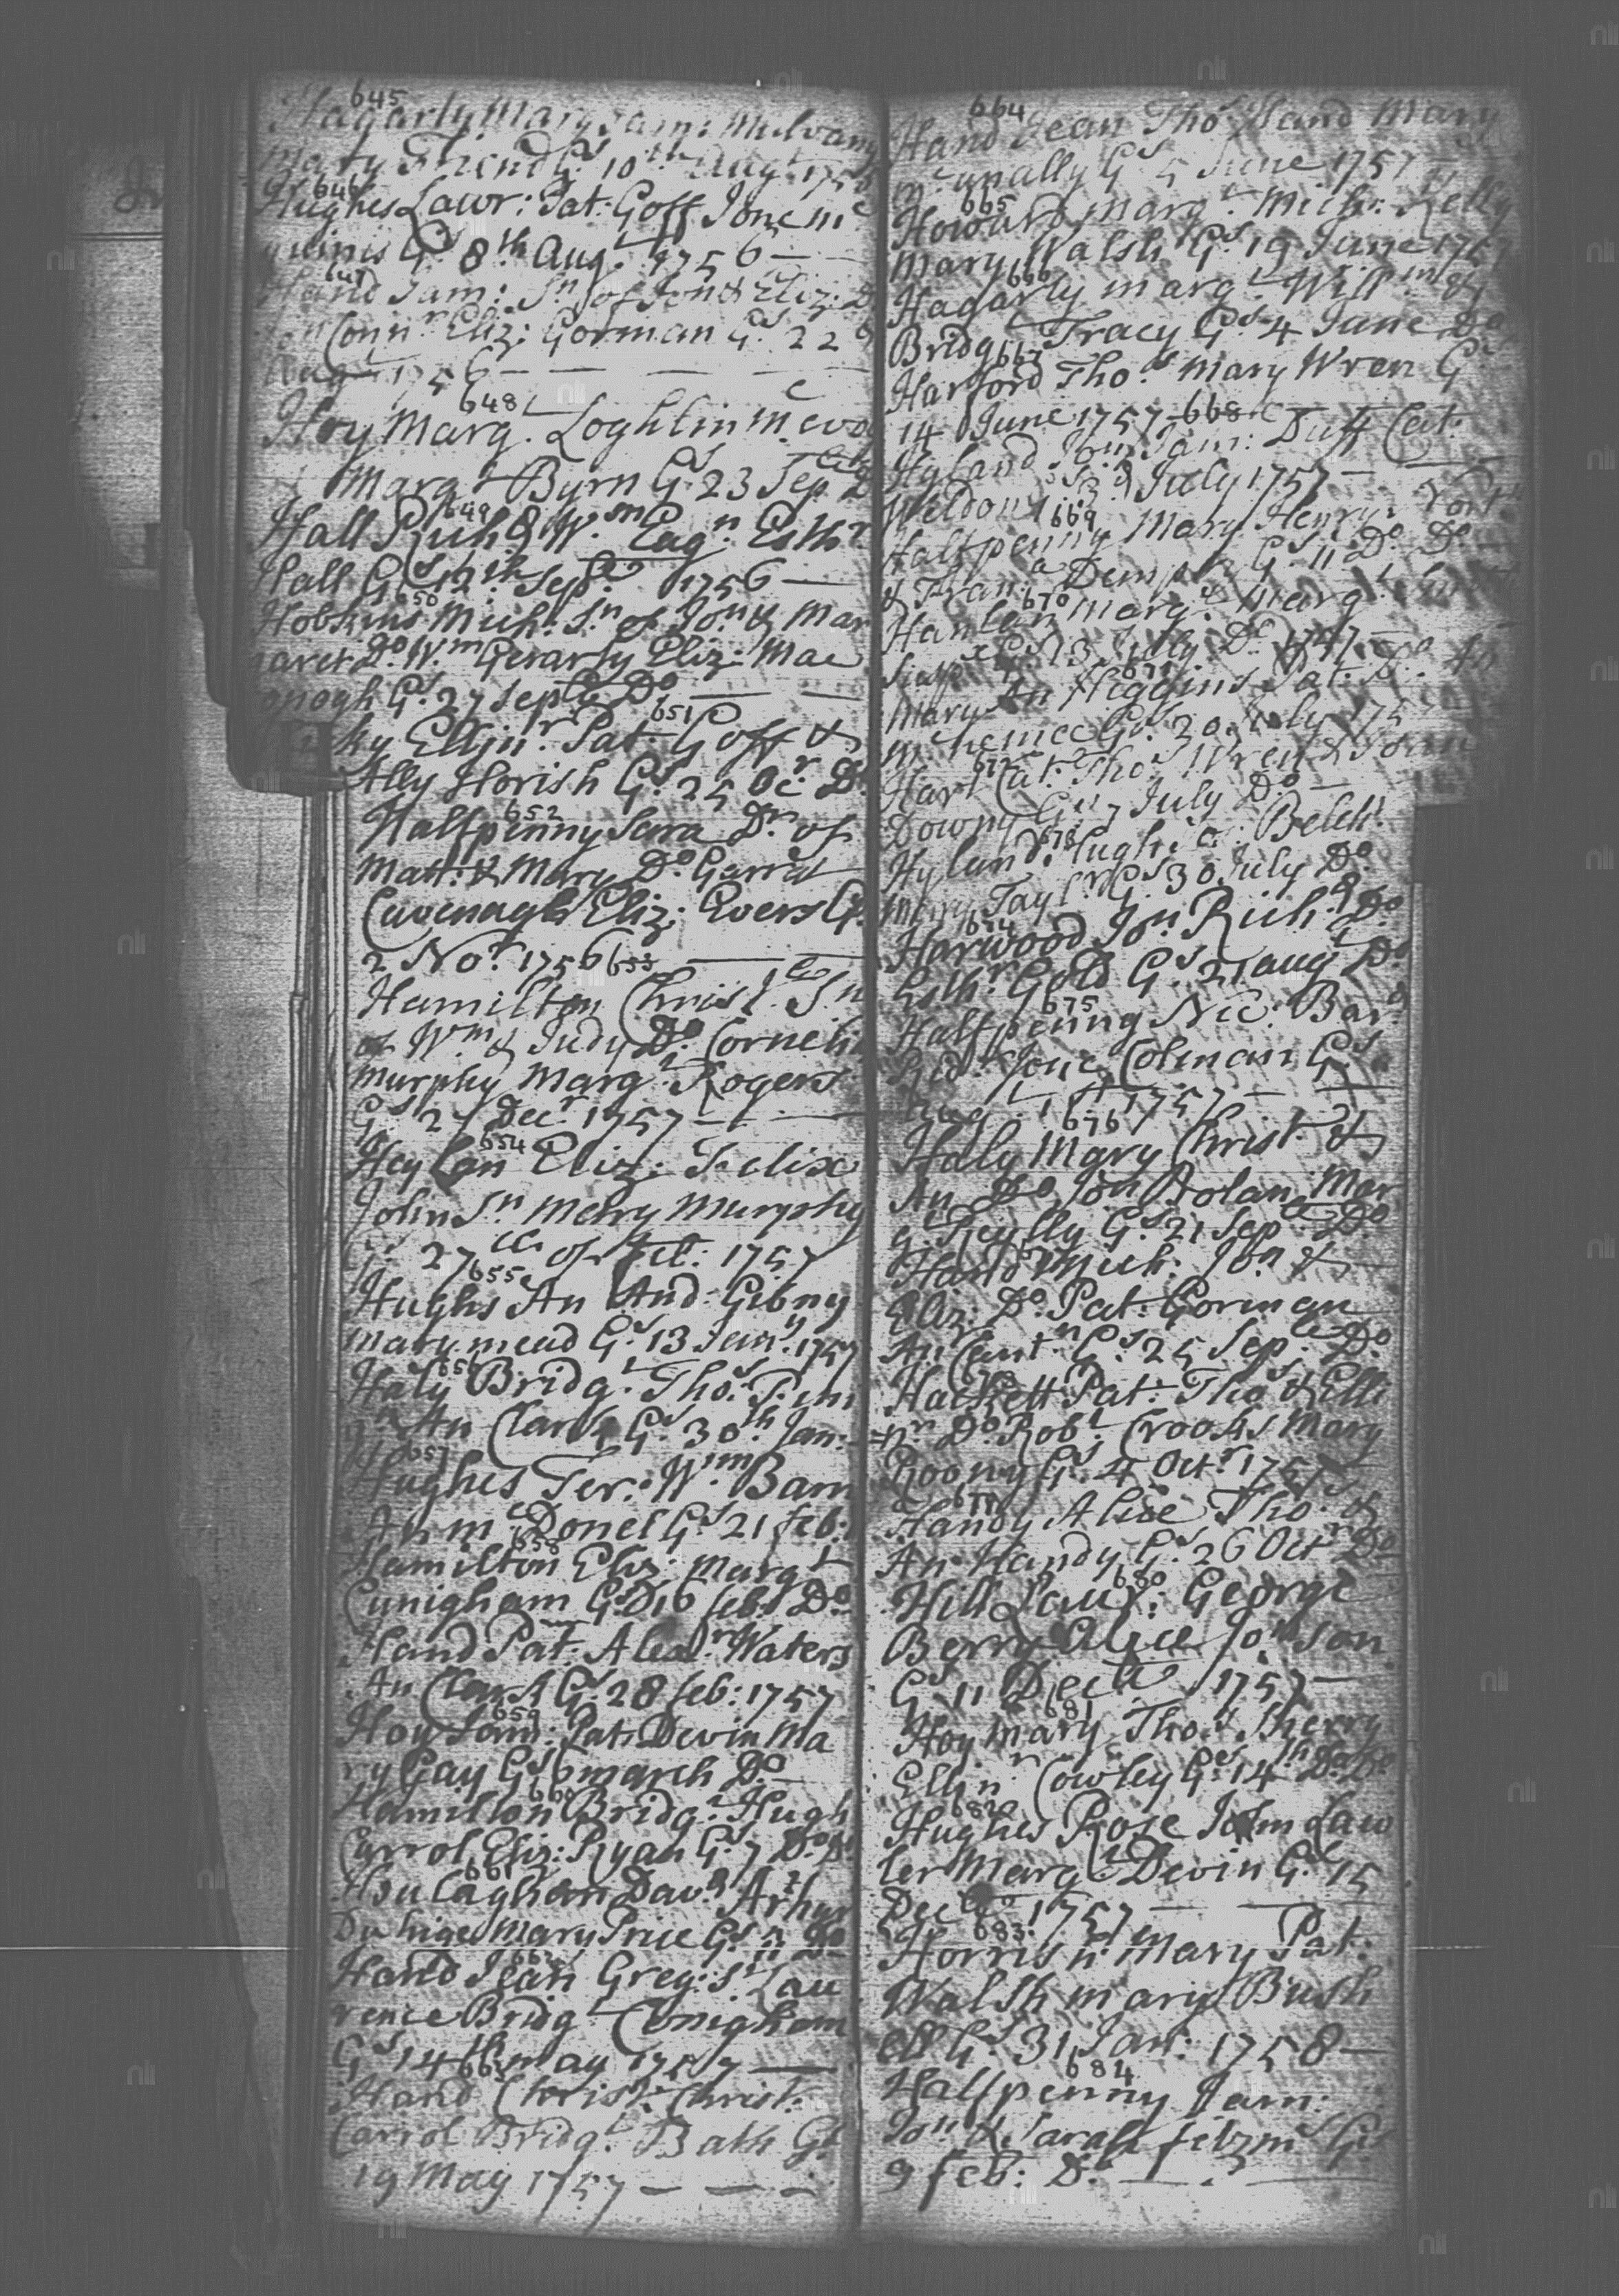 645
Hagarty Mary Jam: Mulvany
Mary Friend Gs 10th Augt 1756
646
Hughes Lawr: Pat: Goff Jone mc
guinis Gs 8th Augt 1756 —
647
Hand Jam: Sn of Jon & Eliz: D
Jon Connr Eliz: Gorman Gs 22d
Augt 1756 — — — —
648
Hoy Margt Loghlin mc evoy
Margt Byrn Gs 23 Sepbr D
649
Hall Rich: & Wm Eagn Esthr
Hall Gs 12th Sepbr 1756 —
650
Hobkins Mich: Sn of Jon & Mar
garet Do Wm Gerarty Eliz: Mac
onogh Gs 27 Sepbr Do — —
651
ky Ellinr Pat: Goff &
Ally Horish Gs 25 Ocr Do
652
Halfpenny Sara Dr of
Matt: & Mary Do Garrat
Cavenagh Eliz: Evers Gs
2 Nor 1756 — —
653
Hamilton Christ: Sn
of Wm & Judy Do Cornelius
Murphy Margt Rogers
Gs 27 Decr 1757 — —
654
Heylan Eliz: Felix
John Sn Mary Murphy
Gs 27 of Feb: 1757
655
Hughs An And: Gibny
Mary mead Gs 13 Janry 1757
656
Haly Bridgt Thos
An Clark Gs 30th Jan:
657
Hughes Ter: Wm Barn
An mc Donel Gs 21 feb:
658
Hamilton Eliz: Margt
Cunigham Gs D16 feb: Do
Hand Pat: Alexr Waters
An Clark Gs 28 feb: 1757
659
Hoy Pat: Devin Ma
ry Gay Gs 6 march Do
660
Hamilton Bridgt Hugh
Carrol Eliz: Ryan Gs 7 Do
661
Davd Arthur
Duhige Mary Price Gs 11 Do
662
Hand Jean Greg: St Lau
rence Bridgt Conigham
Gs 14th may 1757 —
663
Hand Christ: Christ:
Carrol Bridgt Bath Gs
19 May 1757 — — —
664
Hand Jean Thos Hand Mary
mc anally Gs 5 June 1757
665
Howard Margt Mich: Kelly
Mary Walsh Gs 19 June 1757
666
Hagarty margt Willm &
Bridgt Tracy Gs 4 June Do
667
Harford Thos Mary Wren Gs
14 June 1757
668
Hyland Jon Jam: Duff Cat:
Weldon Gs 3d July 1757 — —
669
Halfpenny Mary Henry
& Fran: Dempsy Gs 11 Do Do
670
Hanlan Margt Margt
Gs 13 July Do 1757 —
671
Mary An Higgins Pat: Do An
mc Gs 20 July 175
672
Hart Cat: Thos Wren &
Downy Gs 7 July Do —
673
Hyland Hugh: Belch:
Mary Taylr Gs 30 July Do
674
Harwood Jon Richd Do
Esthr Gold Gs 21 Augt Do
675
Halfpenny Nic: Bar:
Jone Colman Gs
Augt 1757 —
676
Haly Mary Christ: &
An Do Jon Nolan Mar
gt Reylly Gs 21 Sepbr Do
Hand Mich: Jon & —
Eliz: Do Pat: Gorman
An Gs 25 Sepbr Do
678
Hackett Pat: Thos & Elli
=nr Do Robt Crooks Mary
Roony Gs 4 Octr 1757
679
Handy Alice Tho: &
An Handy Gs 26 Octr Do
680
Hill Laur: George
Berry Alice Jonson
Gs 11 Decbr 1757 —
681
Hoy Mary Thos Sherry
Ellinr Cowley Gs 14th Do Do
682
Hughes Rose John Law
ler Margt Devin Gs 15
Decbr 1757 — —
683
Horrish Mary Pat:
Walsh mary Bush
ell Gs 31 Jan: 1758 —
684
Halfpenny Jam:
Jon & Sarah fitzms Gs
9 feb: Do — . —